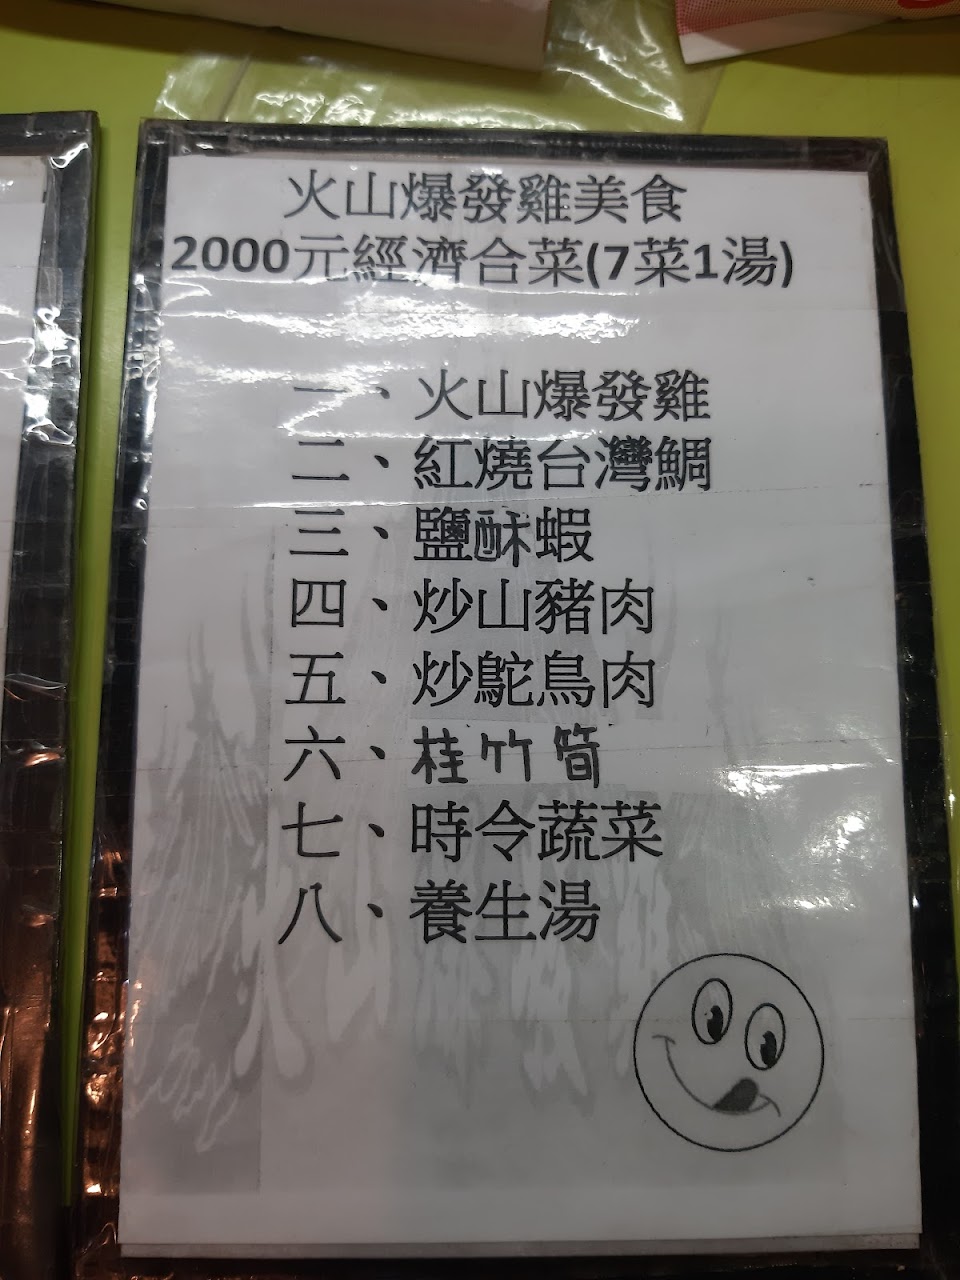 火山爆發雞美食
2000元經濟合菜(7菜1湯)
一、火山爆發雞
二、紅燒台灣鯛
三、鹽酥蝦
四、炒山豬肉
五、炒鴕鳥肉
六、桂竹筍
七、時令蔬菜
八、養生湯